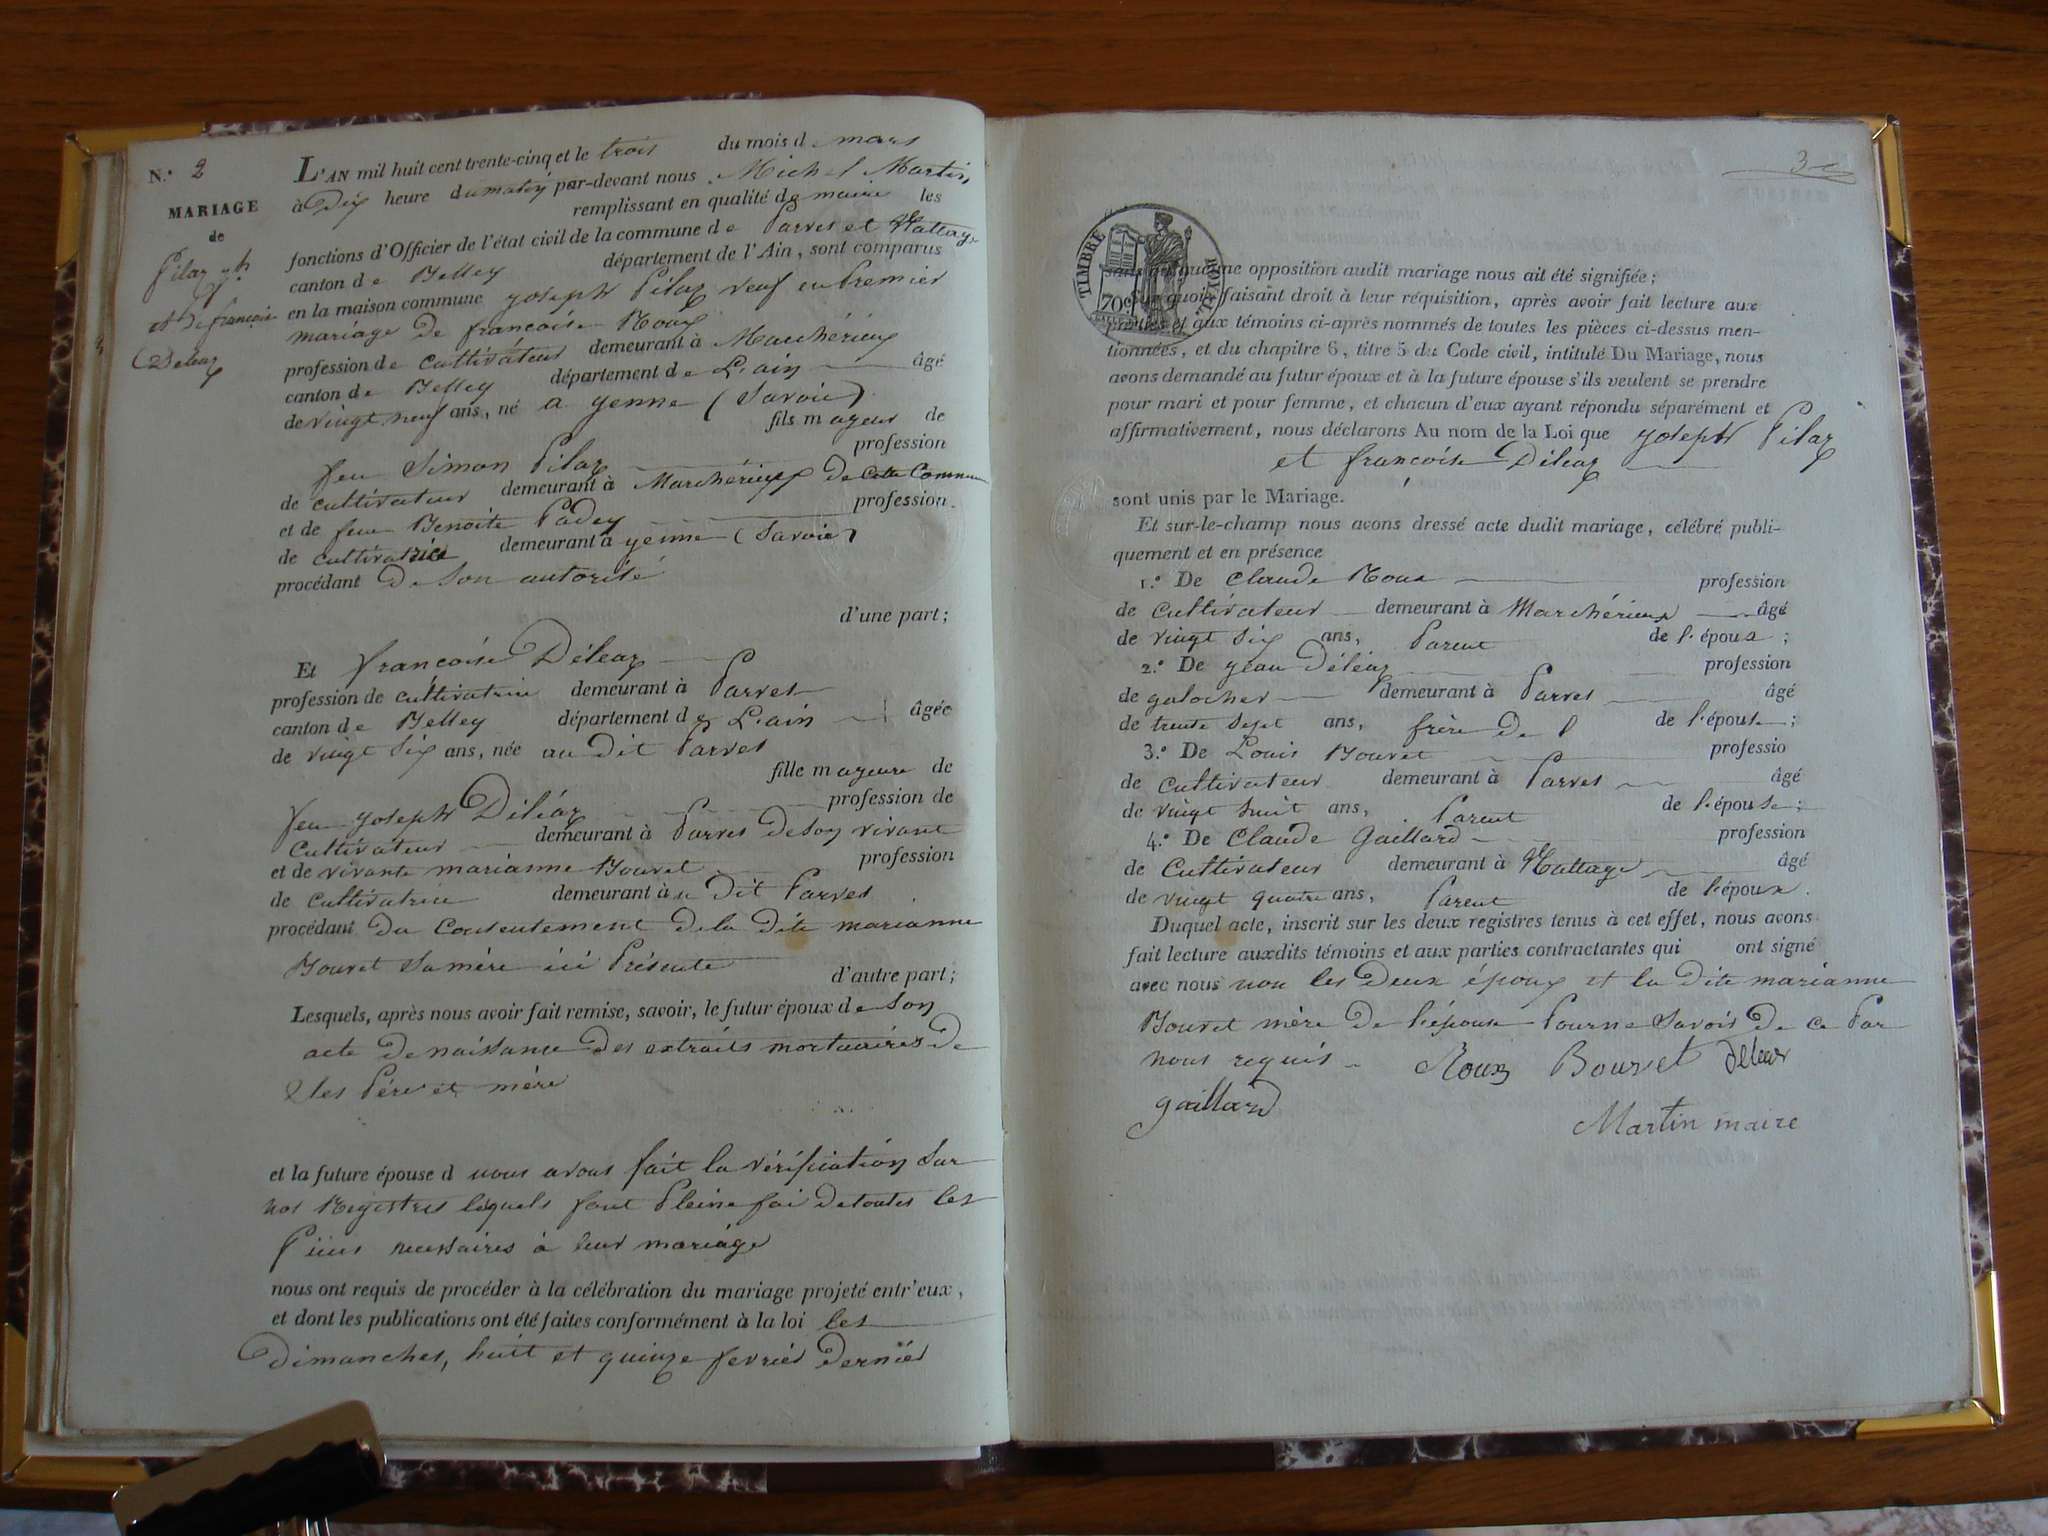 N.° 2
MARIAGE
de
Pilaz jh
et de françoise
Déléaz
L'AN mil huit cent trente-cinq et le trois du mois d e mars
à Dix heure du matin par-devant nous Michel Martin
remplissant en qualité de maire les
fonctions d'Officier de l'état civil de la commune d e Parves et Nattages
canton de Belley département de l'Ain, sont comparus
en la maison commune joseph Pilaz veuf en Premier
mariage de françoise Roux
profession de cultivateur demeurant à Marchérieux
canton de Belley département d e L'ain âgé
de vingt neuf ans, né a yenne (Savoie)
fils mayeur de
feu Simon Pilaz profession
de cultivateur demeurant à Marchérieux de cette Commune
et de feue Benoite Padey profession
de cultivatrice demeurant à yenne (Savoie)
procédant de Son autorité
d'une part;
Et françoise Déléaz
profession de cultivatrice demeurant à Parves
canton de Belley département de L'ain âgée
de vingt Six ans, née au Dit Parves
fille mayeure de
feu joseph Déléaz profession de
Cultivateur demeurant à Parves de Son vivant
et de vivante marianne Bouvet profession
de cultivatrice demeurant à u Dit Parves
procédant du Consentement de la Dite marianne
Bouvet Sa mère ici Présente d'autre part;
Lesquels, après nous avoir fait remise, savoir, le futur époux d e Son
acte de naissance des extraits mortuaires de
Ses Père et mère
et la future épouse d nous avons fait la vérification Sur
nos Registres léquels font Pleine foi de toutes les
Pièces necessaires à leur mariage
nous ont requis de procéder à la célébration du mariage projeté entr'eux,
et dont les publications ont été faites conformément à la loi les
Dimanches, huit et quinze fevrier Dernier
3
TIMBRE ROYAL
70c
sans qu'aucune opposition audit mariage nous ait été signifiée;
Sur quoi, faisant droit à leur réquisition, après avoir fait lecture aux
parties et aux témoins ci-après nommés de toutes les pièces ci-dessus men-
tionnées, et du chapitre 6, titre 5 du Code civil, intitulé Du Mariage, nous
avons demandé au futur époux et à la future épouse s'ils veulent se prendre
pour mari et pour femme, et chacun d'eux ayant répondu séparément et
affirmativement, nous déclarons Au nom de la Loi que joseph Pilaz
et françoise Déléaz
sont unis par le Mariage.
Et sur-le-champ nous avons dressé acte dudit mariage, célébré publi-
quement et en présence
1.° De Claude Roux profession
de cultivateur demeurant à Marchérieux âgé
de vingt Six ans, Parent de l'époux;
2.° De jean Déléaz profession
de galocher demeurant à Parves âgé
de trente Sept ans, frère De l de l'épouse;
3.° De Louis Bouvet professio
de cultivateur demeurant à Parves âgé
de vingt huit ans, Parent de l'épouse;
4.° De Claude Gaillard profession
de Cultivateur demeurant à Nattage âgé
de vingt quatre ans, Parent de l'époux.
Duquel acte, inscrit sur les deux registres tenus à cet effet, nous avons
fait lecture auxdits témoins et aux parties contractantes qui ont signé
avec nous non les Deux époux et la Dite marianne
Bouvet mère de l'épouse Pour ne Savoir de ce Par
nous requis Roux Bouvet deleaz
gaillard
Martin maire